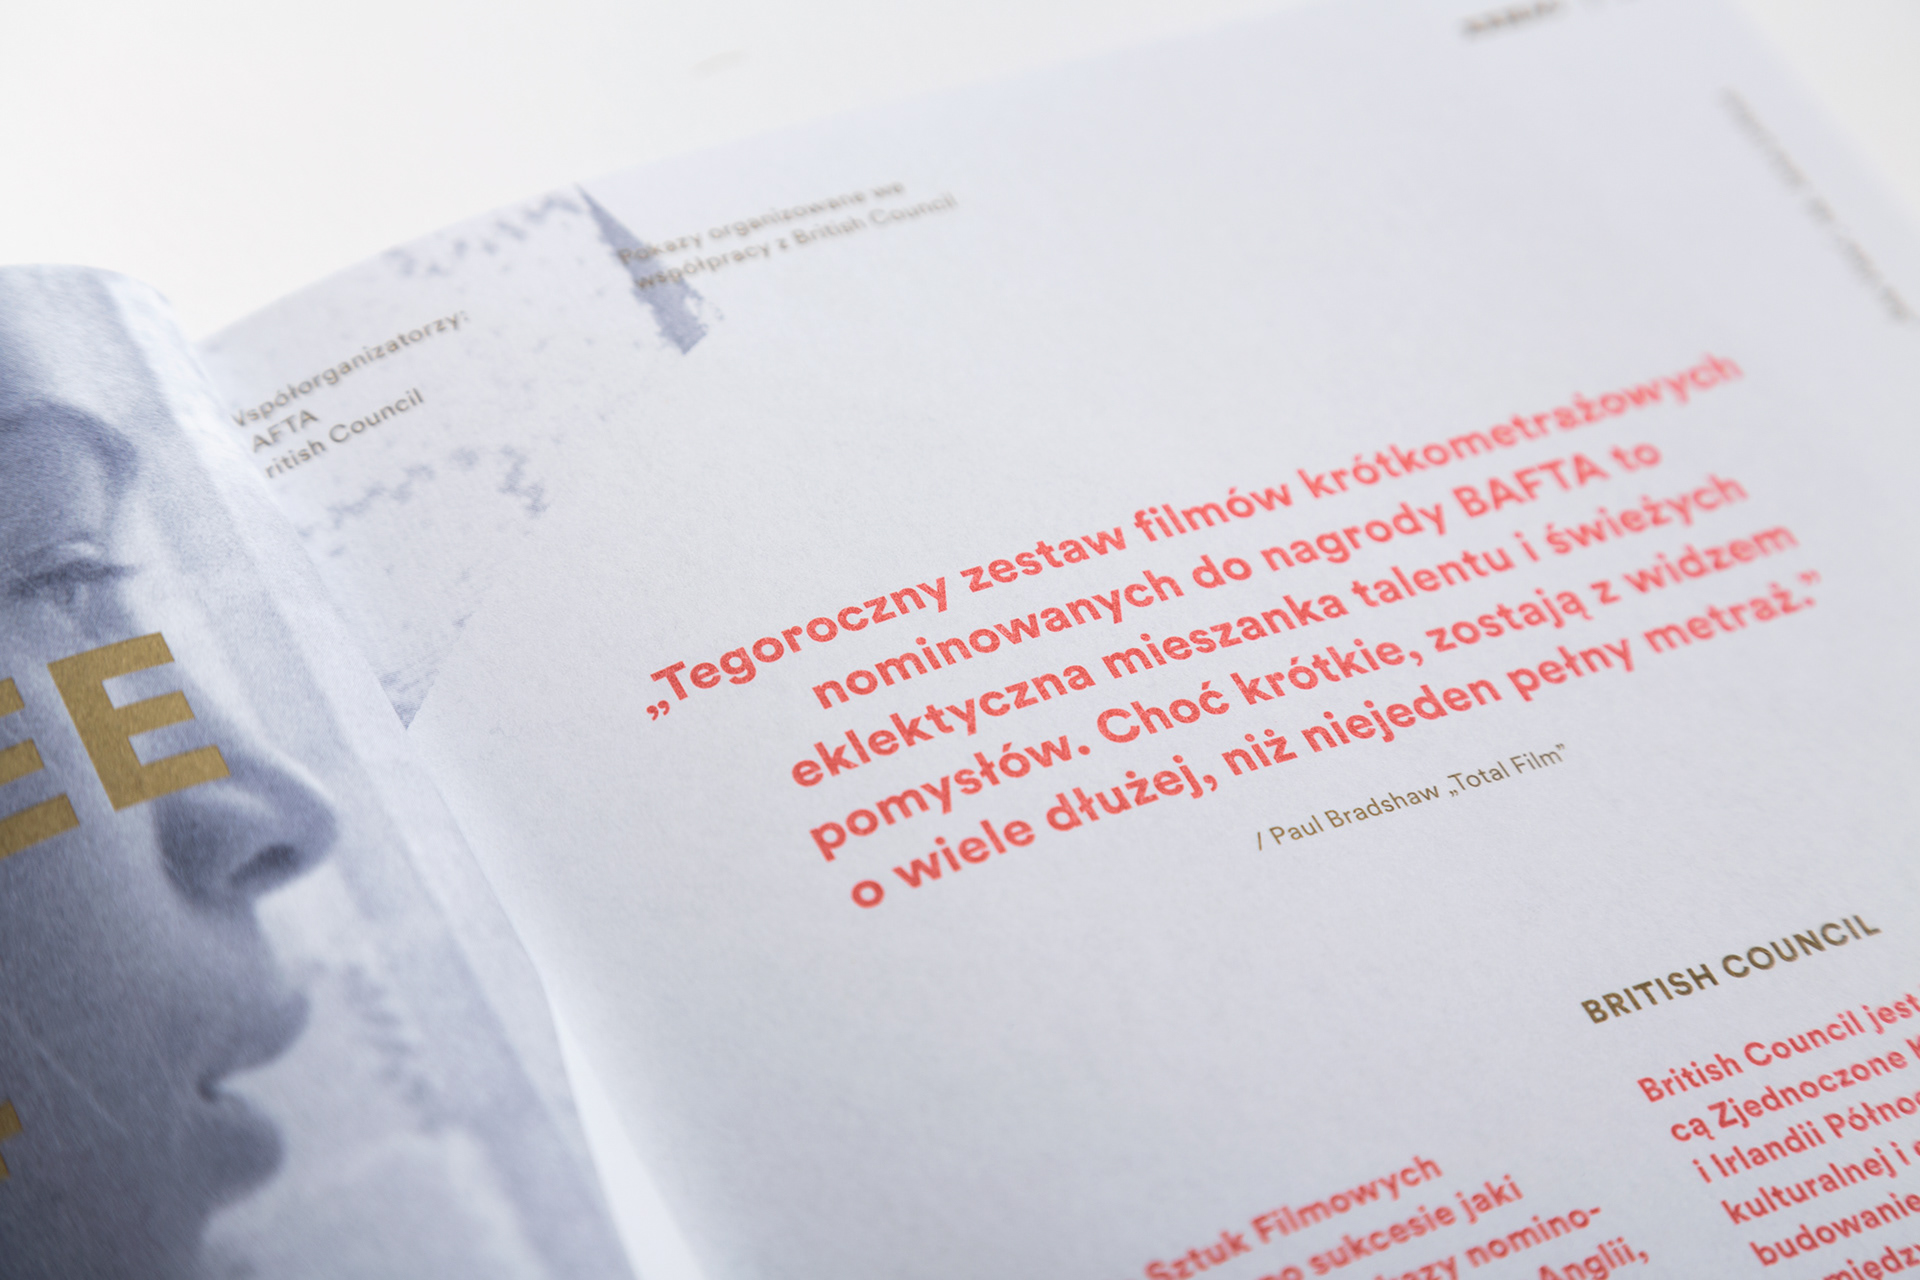 EE
Współorganizatorzy:
BAFTA
British Council
Pokazy organizowane we
współpracy z British Council
„Tegoroczny zestaw filmów krótkometrażowych
nominowanych do nagrody BAFTA to
eklektyczna mieszanka talentu i świeżych
pomysłów. Choć krótkie, zostają z widzem
o wiele dłużej, niż niejeden pełny metraż.”
/ Paul Bradshaw „Total Film”
Sztuk Filmowych
sukcesie jaki
nomino-
Anglii,
BRITISH COUNCIL
British Council jest
cą Zjednoczone
i Irlandii
kulturalnej i
budowanie